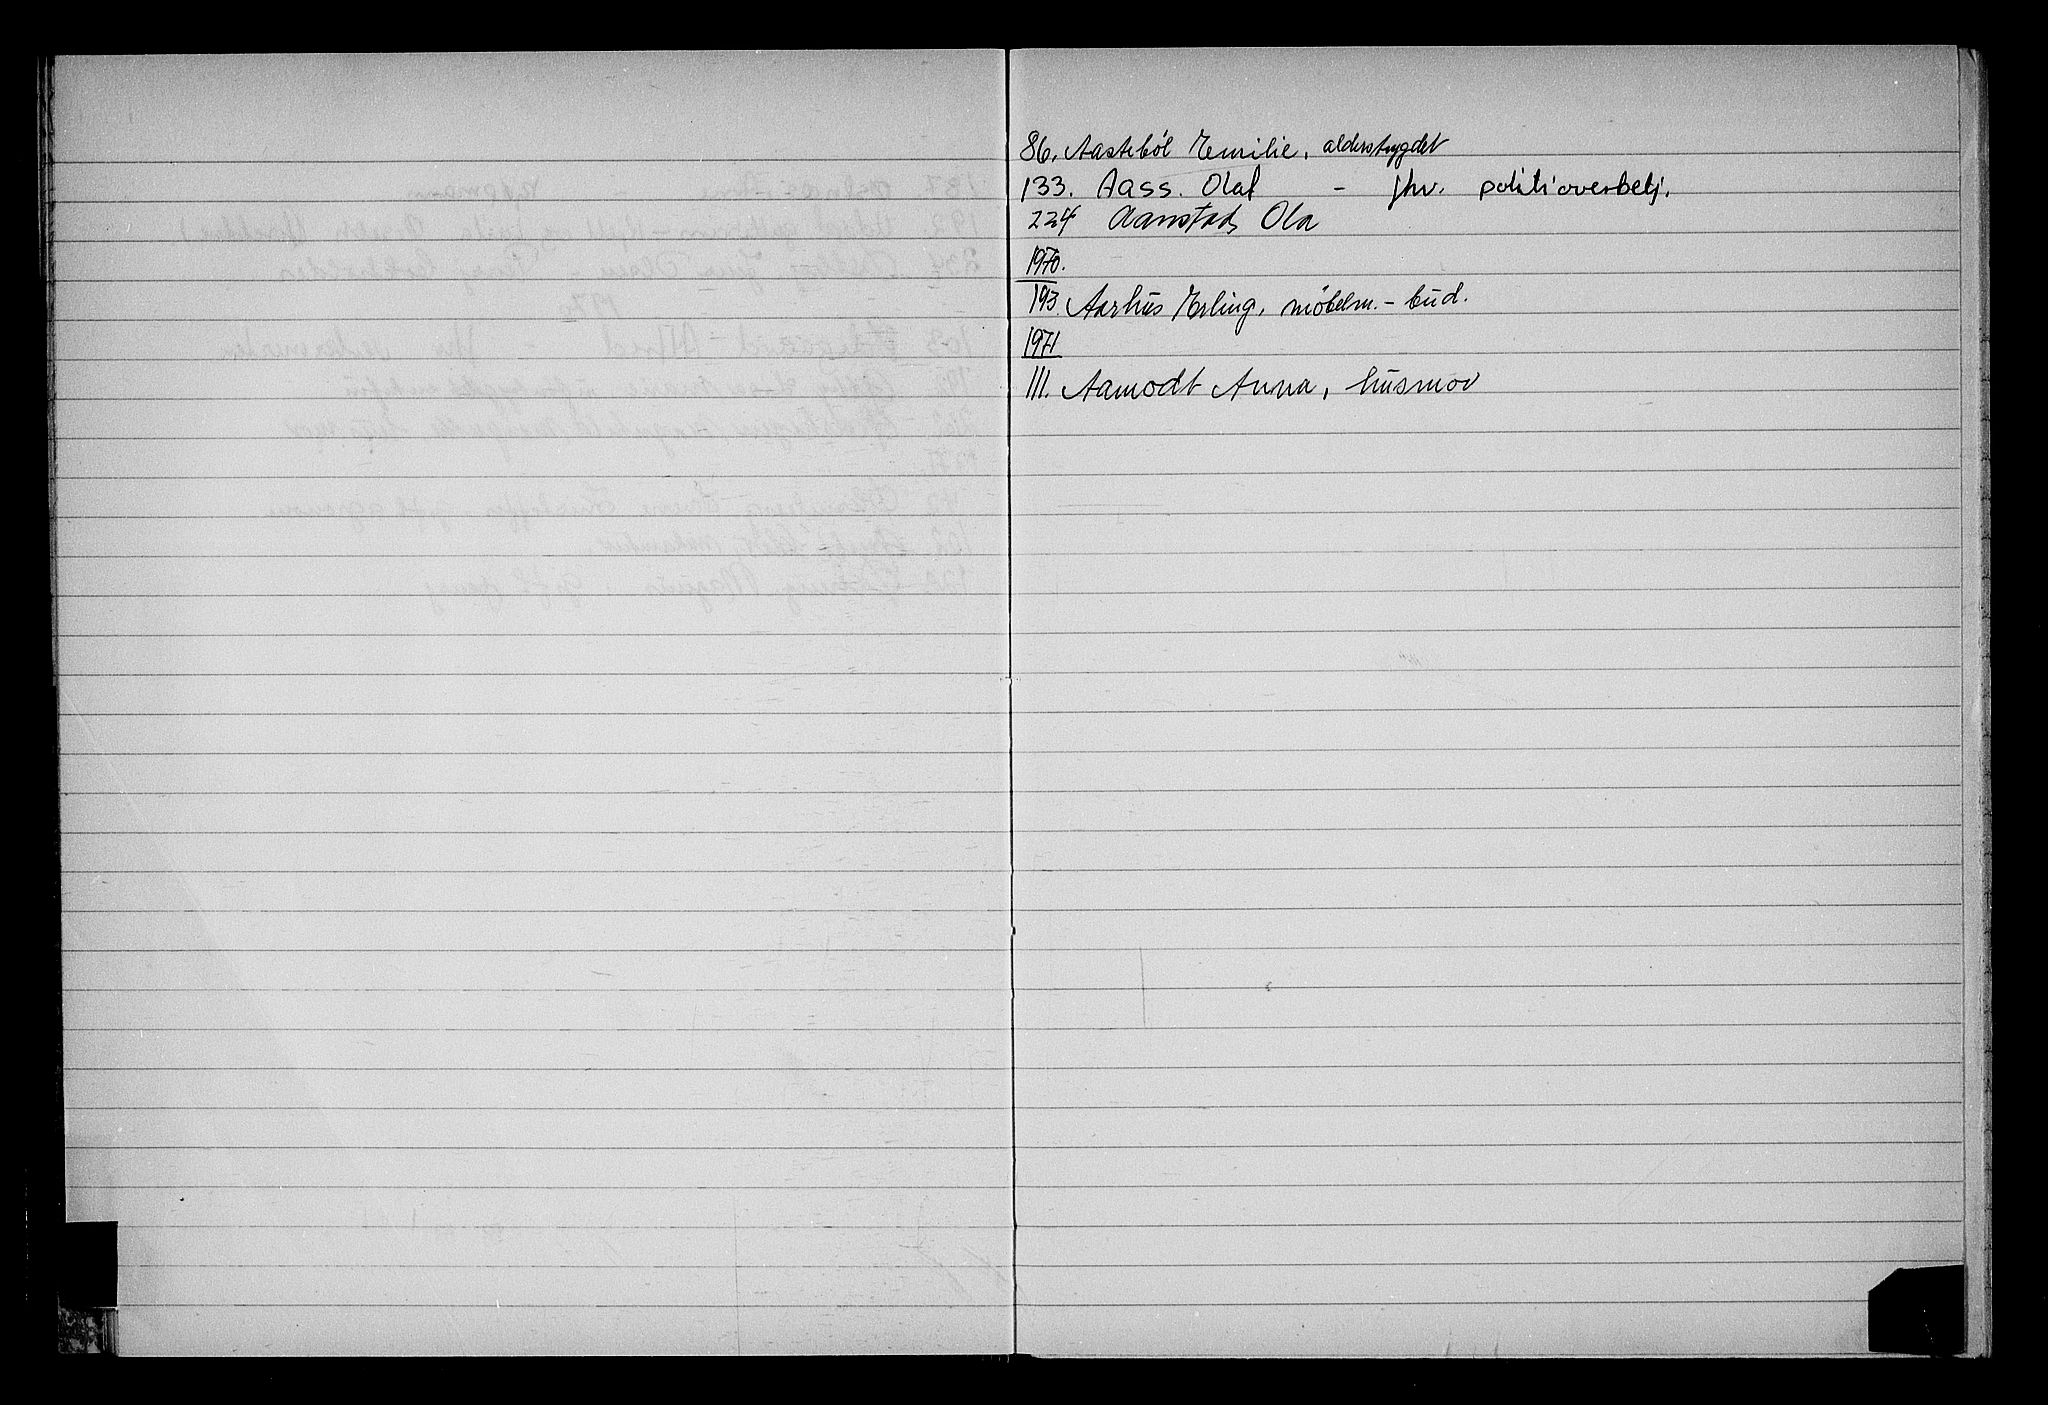 86. Aastebøl Emilie, alderstrygdet
133. Aass. Olaf - fhv. politioverbetj.
224 Aanstad, Ola
1970.
193. Aarhus Erling, møbelm. - bud.
1971
111. Aamodt Anna, husmor